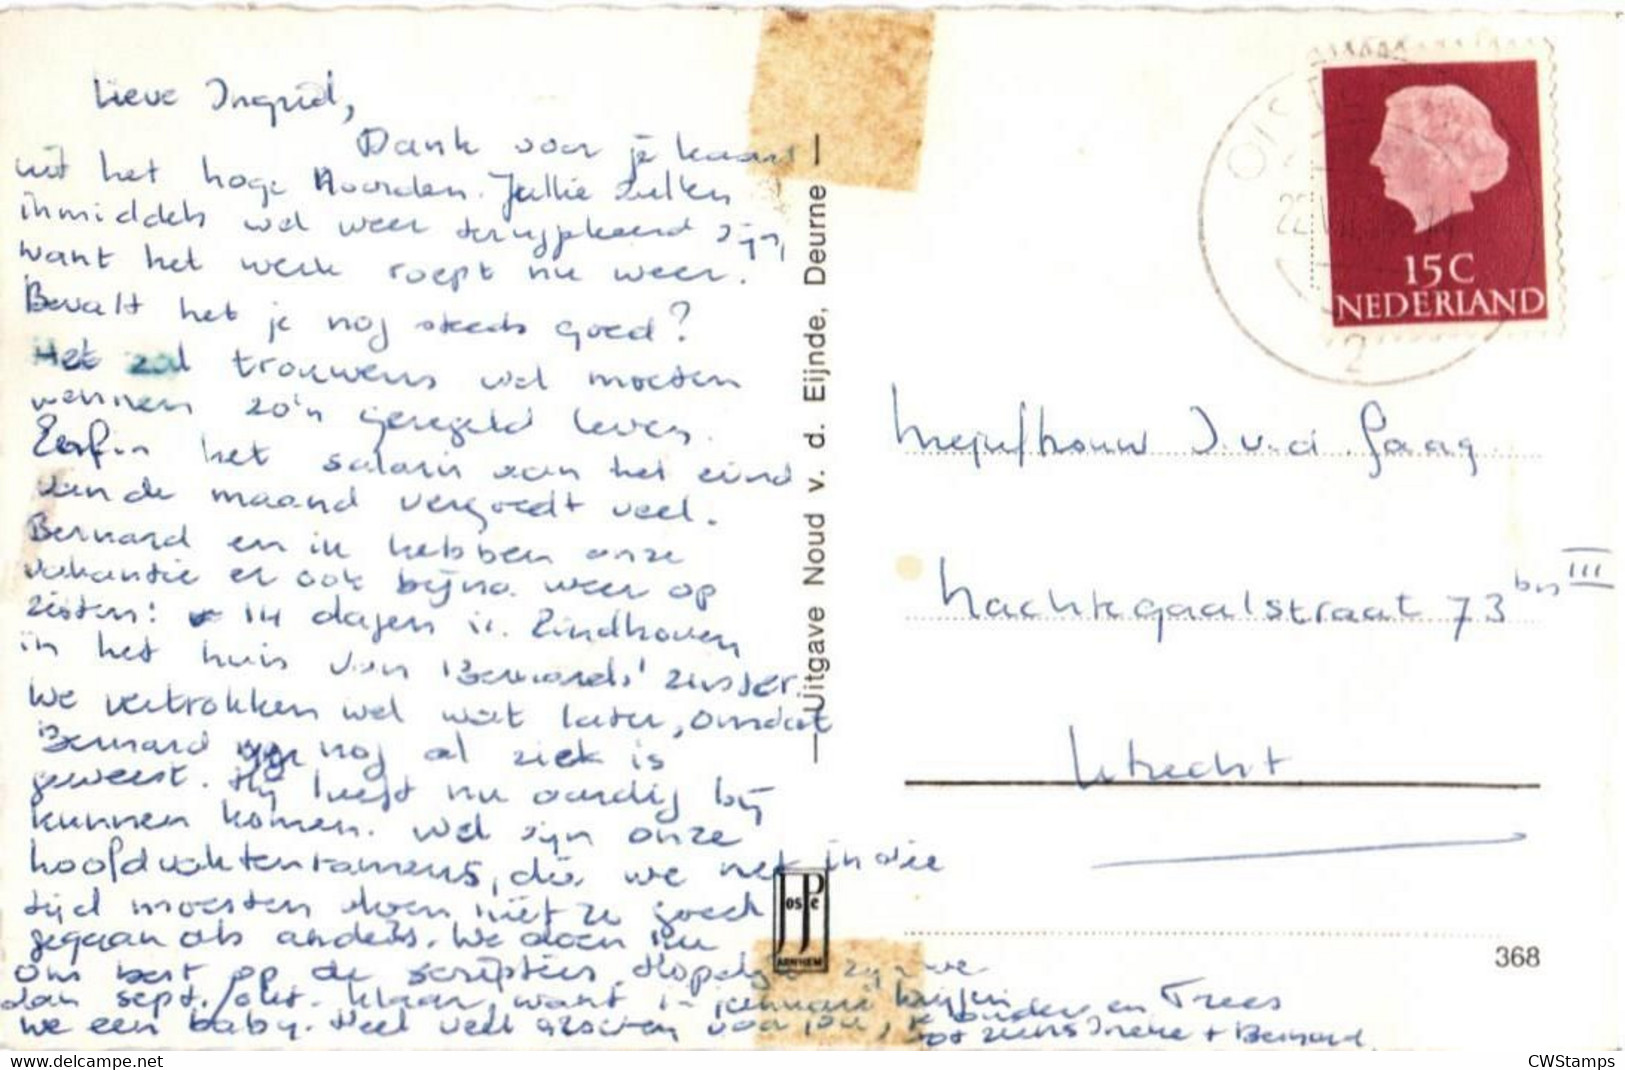 Lieve Ingrid,
Dank voor je kaart
uit het hoge Noorden. Jullie zullen
inmiddels wel weer teruggekeerd zijn,
want het werk roept nu weer.
Bevalt het je nog steeds goed?
Het zal trouwens wel moeten
wennen zo'n geregeld leven.
Enfin het salaris aan het eind
van de maand vergoedt veel.
Bernard en ik hebben onze
vakantie er ook bijna weer op
zitten: 14 dagen in Eindhoven
in het huis van Bernards' zuster.
We vertrokken wel wat later, omdat
Bernard nog al ziek is
geweest. Hij heeft nu aardig bij
kunnen komen. Wel zijn onze
hoofdvaktentamens, die we net in die
tijd moesten doen niet zo goed
gegaan als anders. We doen nu
ons best op de scripties. Hopelijk zijn we
dan sept./okt. klaar, want in januari krijgen
we een baby. Heel veel groeten voor jou, je ouders en Trees
tot ziens Ineke + Bernard
Uitgave Noud v. d. Eijnde, Deurne
JosPé
ARNHEM
OIS
22 VII
2
15C
NEDERLAND
Mejuffrouw I. v. d. Gaag
Nachtegaalstraat 73 bis III
Utrecht
368
delcampe.net
CWStamps